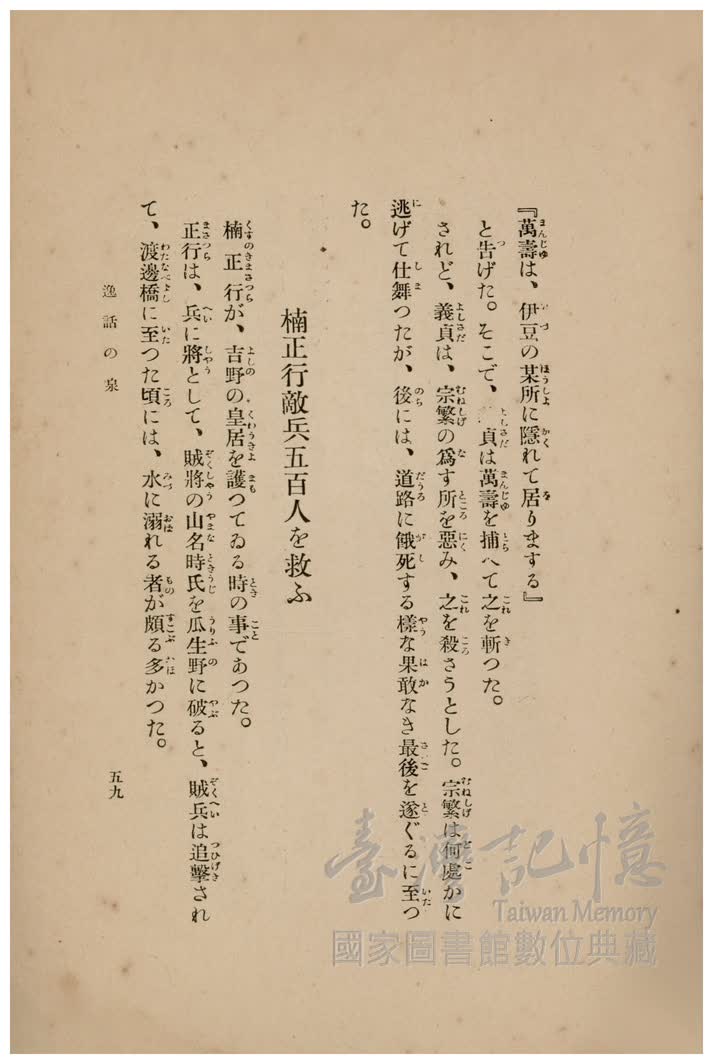 『萬壽は、伊豆の某所に隱れて居りまする』
と告げた。そこで、貞は萬壽を捕へて之を斬つた。
されど、義貞は、宗繁の爲す所を惡み、之を殺さうとした。宗繁は何處かに
逃げて仕舞つたが、後には、道路に餓死する樣な果敢なき最後を遂ぐるに至つ
た。
楠正行敵兵五百人を救ふ
楠正行が、吉野の皇居を護つてゐる時の事であつた。
正行は、兵に將として、賊將の山名時氏を瓜生野に破ると、賊兵は追擊され
て、渡邊橋に至つた頃には、水に溺れる者が頗る多かつた。
逸話の泉
五九
臺灣記憶
Taiwan Memory
國家圖書館數位典藏